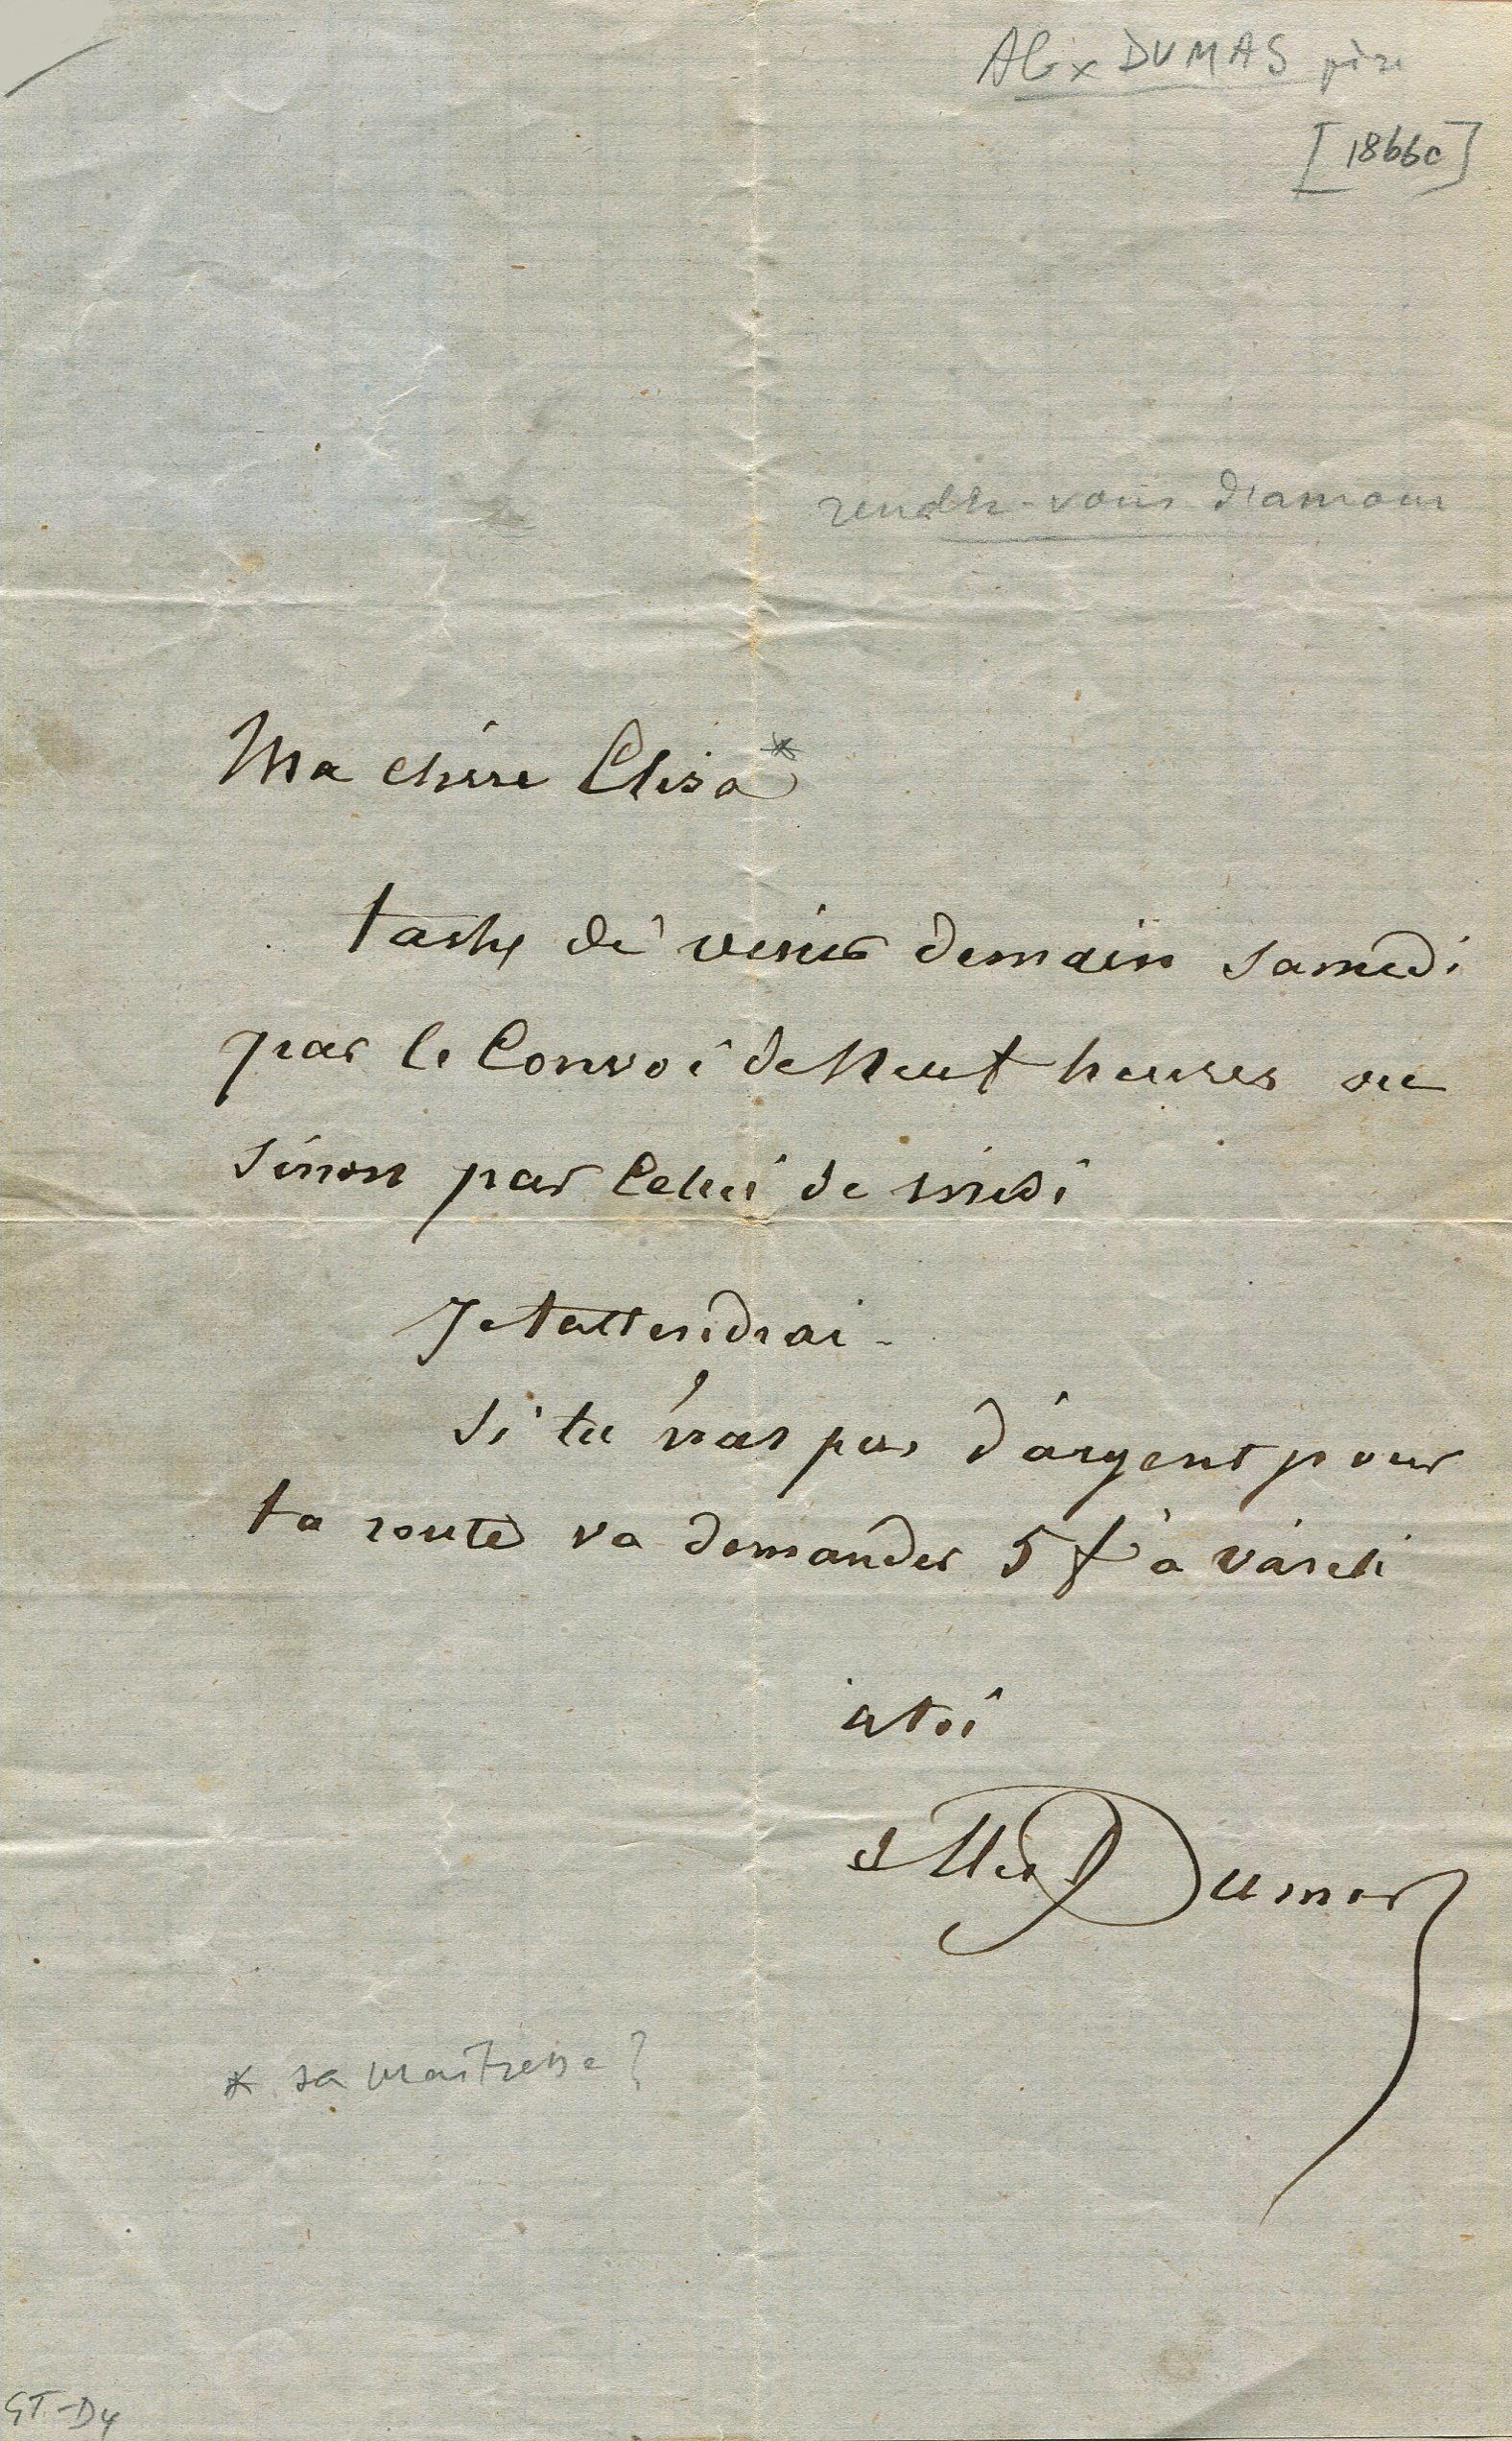 Alex DUMAS père
[1866c]
rendez-vous d'amour
Ma chère Elisa*
tache de venir demain samedi
par le Convoi de Neuf heures ou
sinon par Celui de midi
Je tattendrai -
Si tu n'as pas d'argent pour
ta route va demander 5 f à
a toi
Alex Dumas
* sa maitresse ?
GT-D4